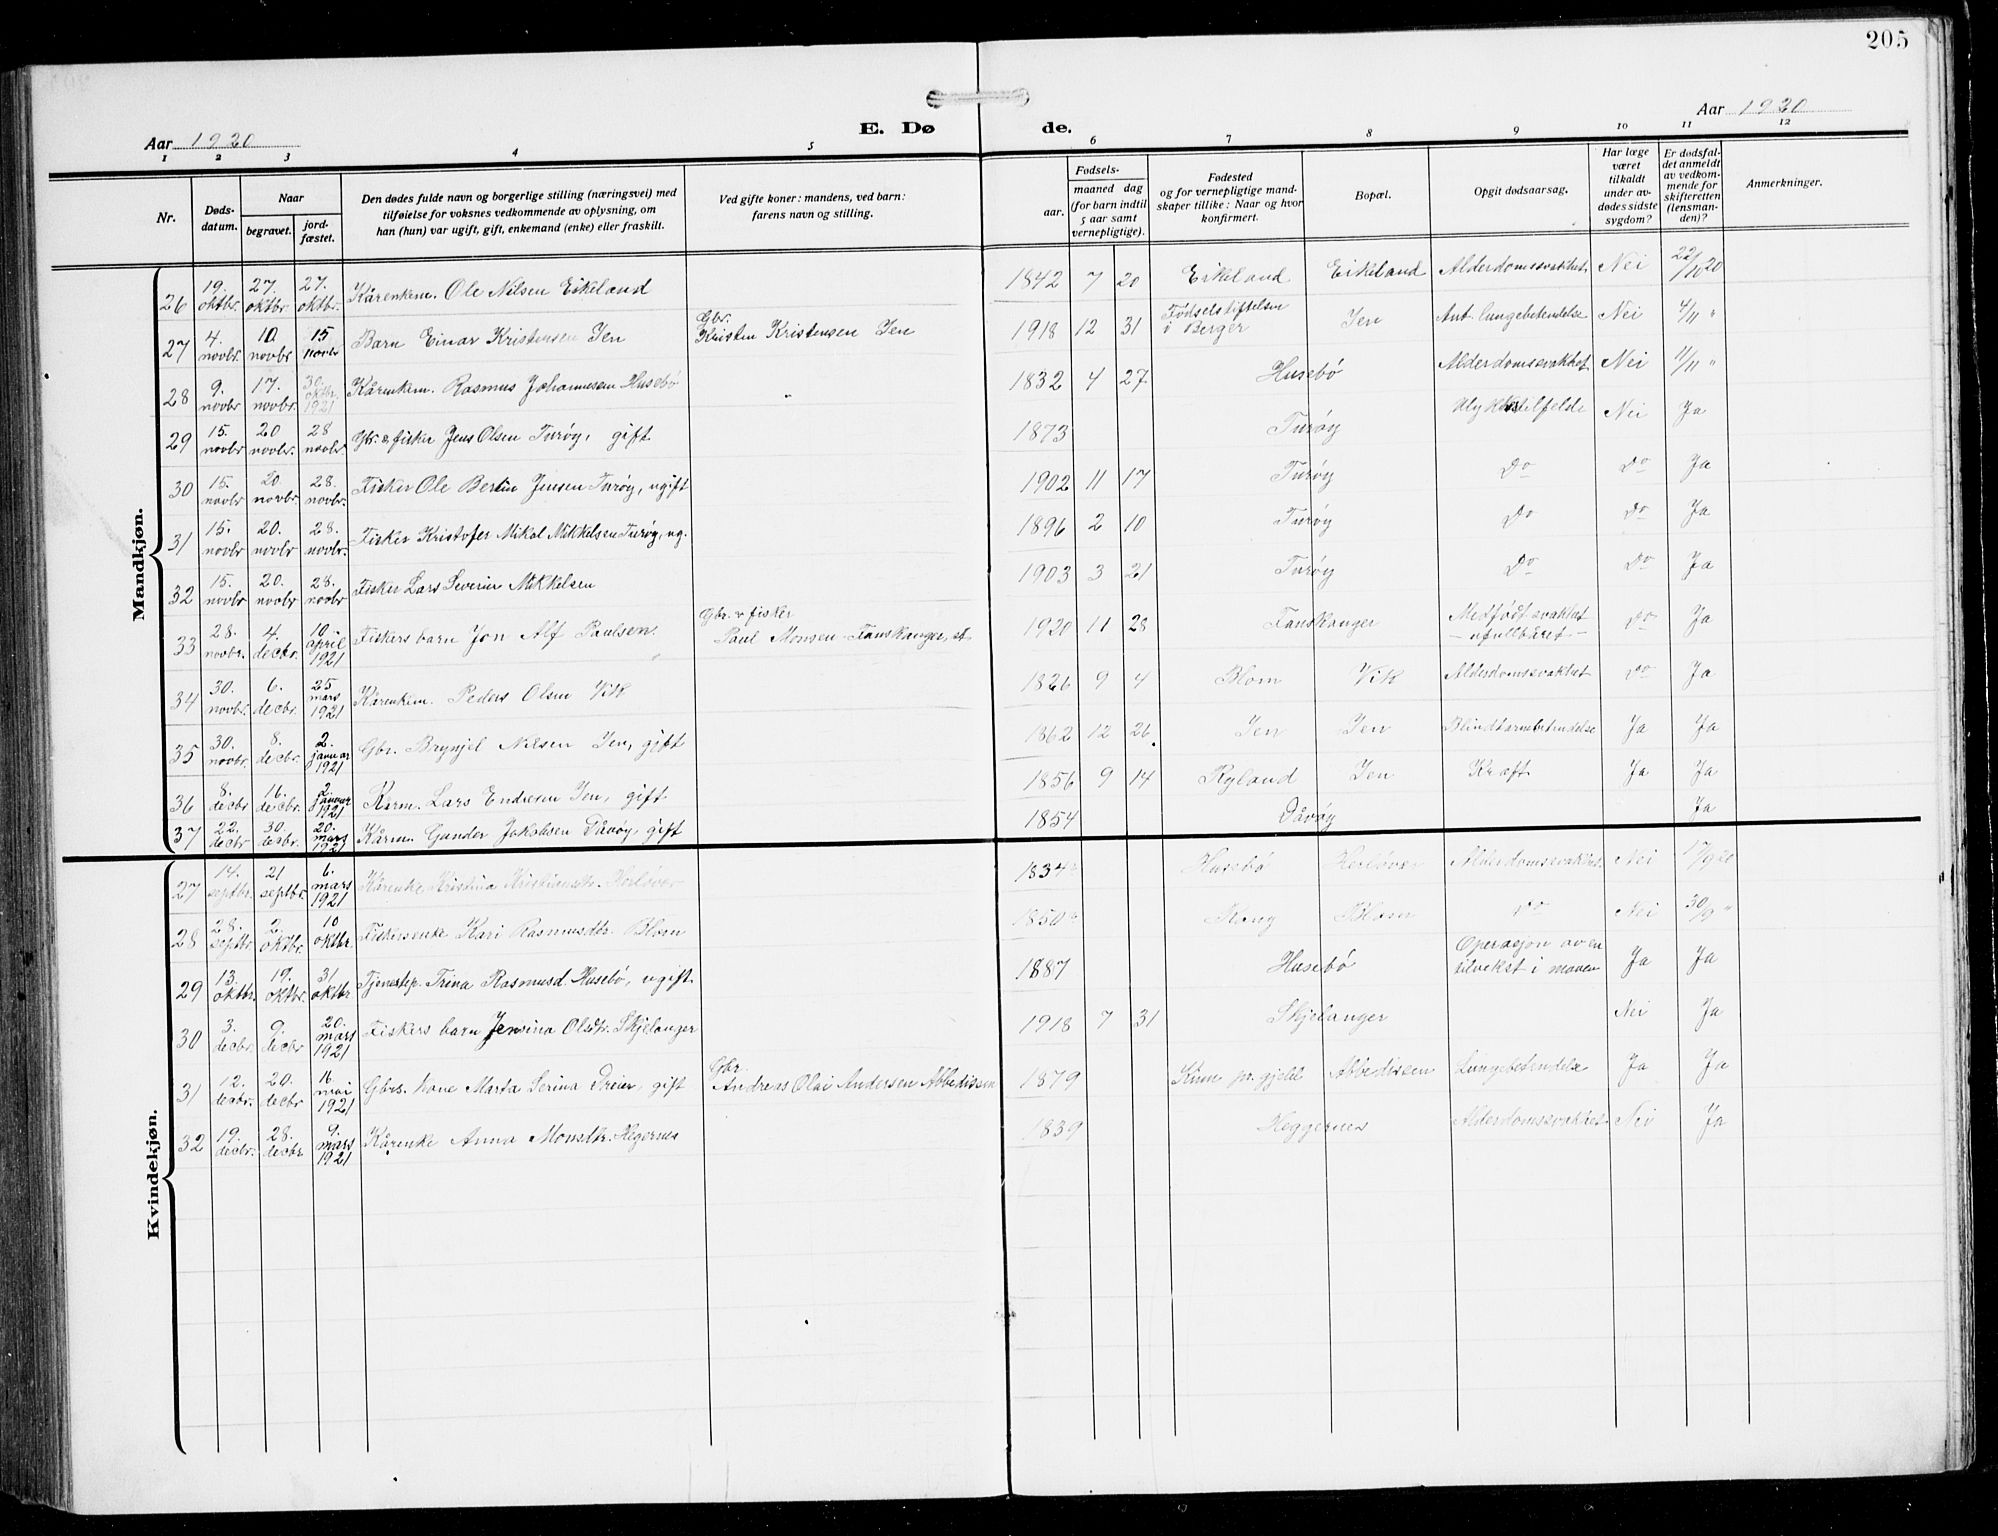 205
Aar 1920
E. Dø de.
Aar 1920
1 2 3 4 5 6 7 8 9 10 11 12
Nr.
Døds-datum.
Naar
begravet.
jord-fæstet.
Den dødes fulde navn og borgerlige stilling (næringsvei) med
tilføielse for voksnes vedkommende av oplysning, om
han (hun) var ugift, gift, enkemand (enke) eller fraskilt.
Ved gifte koner: mandens, ved barn:
farens navn og stilling.
Fødsels-
aar.
maaned dag
(for barn indtil
5 aar samt
vernepligtige).
Fødested
og for vernepligtige mand-
skaper tillike: Naar og hvor
konfirmert.
Bopæl.
Opgit dødsaarsag.
Har læge
været
tilkaldt
under av-
dødes sidste
sygdom?
Er dødsfal-
det anmeldt
av vedkom-
mende for
skifteretten
(lensman-
den)?
Anmerkninger.
Mandkjøn.
26 19. oktbr. 27. oktbr 27. oktbr. Kårenkem. Ole Nilsen Eikeland 1842 7 20 Eikeland Eikeland Alderdomssvakhet Nei 22/10 20
27 4. novbr. 10 novbr 15 novbr Barn Einar Kristensen Jen Gbr. Kristen Kristensen Jen 1918 12 31 Fødselsstiftelsen i Bergen Jen Ant. lungebetendelse Nei 4/11 "
28 9. novbr 17. novbr. 30. oktbr. 1921 Kårenkem. Rasmus Johannesen Husebö 1832 4 27 Husebö Alderdomssvakhet Nei 11/11 "
29 15. novbr 20 novbr. 28 novbr. Gbr. & fisker Jens Olsen Turøy, gift 1873 Turøy Ulykkestilfelde Nei Ja
30 15. novbr 20. novbr. 28. novbr. Fisker Ole Bertin Jensen Turøy, ugift 1902 11 17 Turøy Do Do Ja
31 15. novbr 20. novbr 28. novbr. Fisker Kristofer Mikal Mikkelsen Turøy, ug. 1896 2 10 Turøy Do Do Ja
32 15. novbr 20. novbr 28. novbr Fisker Lars Severin Mikkelsen 1903 3 21 Turøy Do Do Ja
33 28. novbr. 4. decbr. 10 april 1921 Fiskers barn Jon Alf Paulsen. Gbr. & fisker Paul Monsen Fanskanger, 1920 11 28 Fanskanger Medfødt svakhet – ufullbåret – Do Ja
34 30. novbr. 6. decbr. 25 mars 1921 Kårenkem. Peders Olsen Vik 1826 9 4 Blom Vik Alderdomssvakhet Do Ja
35 30. novbr. 8. decbr. 2. januar 1921 Gbr. Brynjel Nilsen Jen, gift 1862 12 26 Jen Jen Blindtarmbetendelse Ja Ja
36 8. decbr 16. decbr. 2. januar 1921 Karm. Lars Endresen Jen, gift 1856 9 14 Ryland Jen Kræft Ja Ja
37 22. decbr 30. decbr. 20. mars 1921 Kårm. Gunder Jakobsen Dåvøy, gift 1854 Dåvøy Ja
Kvindekjøn.
27 14. septbr. 21 septbr. 6. mars 1921 Kårenke Kristina Kristiansdr. Herløver 1834 Husebö Herløver Alderdomssvakhet. Nei 17/9 20
28 28. septbr. 2. oktbr. 10 oktbr. Fiskersenke Kari Rasmusdtr. Blom 1850 Rong Blom Do Nei 30/9 "
29 13. oktbr. 19. oktbr. 31 oktbr Tjenestep. Trina Rasmusd. Husebö, ugift. 1887 Husebö Operasjon av en tilvekst i maven Ja Ja
30 3. decbr. 9. decbr 20. mars 1921 Fiskers barn Jensina Olsdtr. Skjelanger 1918 7 31 Skjelanger Nei Ja
31 12. decbr. 20. decbr 16. mai 1921 Gbrs. kone Marta Serina Dreier, gift Gbr. Andreas Olai Andersen Abbedissen 1879 Kinn pr. gjeld Abbedissen Lungebetendelse Ja Ja
32 19. decbr. 28. decbr 9. mars 1921 Kårenke Anna Monsdtr. Hegernes 1839 Heggernes Alderdomssvakhet Nei Ja